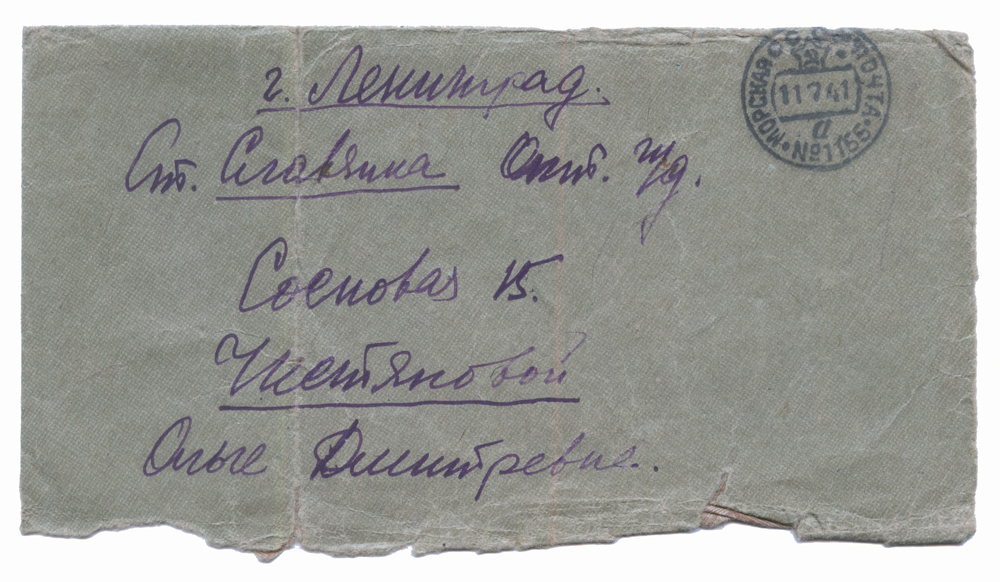 г. Ленинград.
Ст. Славянка Окт. ж/д.
Сосновая 15.
Чистяковой
Ольге Дмитревне..
СССР
МОРСКАЯ ПОЧТА
11 7 41
а
№1155